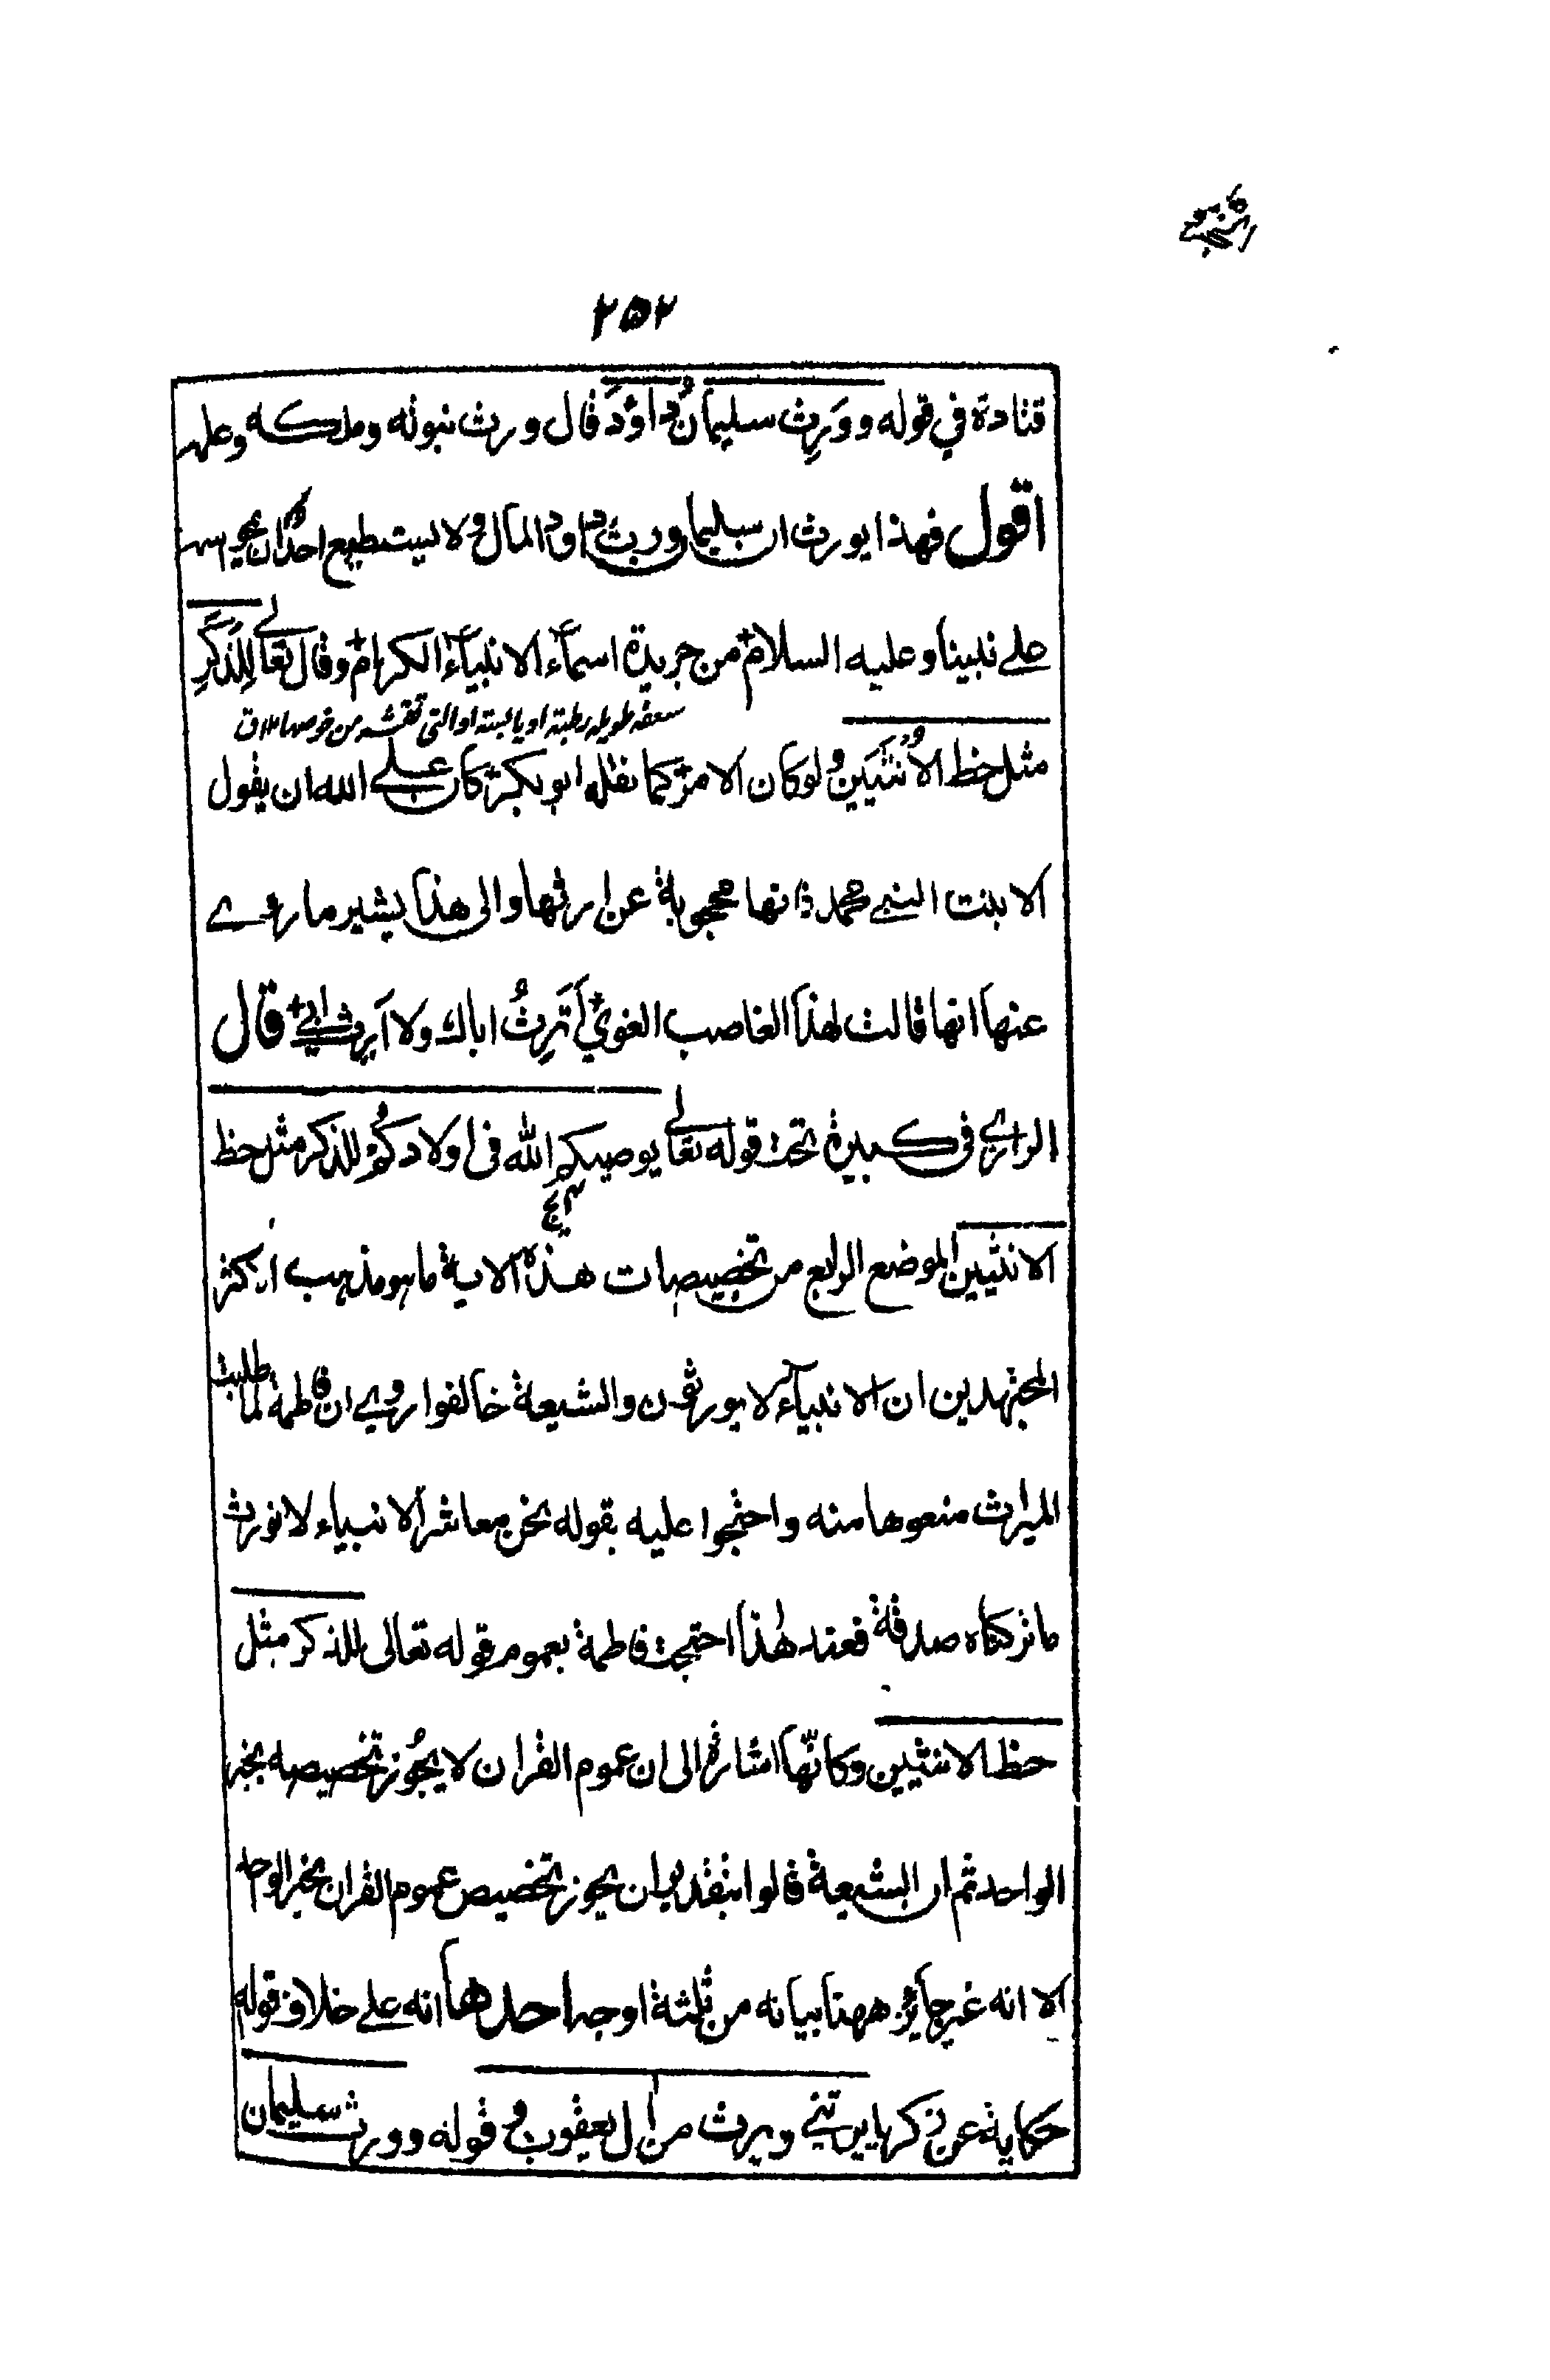 ٢٥٢
قتادة في قوله ووَرِث سليمانُ داوٗدَ قال ورث نبوته وملكه وعلمه
اقول فهذا يورث ان سليمان ورث داود المال ولا يستطيع احد ان يمحو اسمه
على نبينا وعليه السلام من جريدة اسماء الانبياء الكرام وقال تعالى للذَّكَرِ
سعفه طويله رطبته او يابسته او التي تقشر من خوصها ١٢ ق
مثل حظ الاُنثيين ولو كان الامر كما نقله ابو بكر كان على الله ان يقول
الا بنت النبي محمد فانها محجوبة عن ارثها والى هذا يشير ما روى
عنها انها قالت لهذا الغاصب الغوي أتَرِثُ اباك ولا اَرِث ابي قال
الرازي في كبيره تحت قوله تعالى يوصيكم الله في اولادكم للذكر مثل حظ
الانثيين الموضع الرابع من تخصيصات هذه الاية ما هو مذهب اكثر
المجتهدين ان الانبياء لا يورثون والشيعة خالفوا روي ان فاطمة لما طلبت
الميراث منعوها منه واحتجوا عليه بقوله نحن معاشر الانبياء لا نورث
ما تركناه صدقة فعند هٰذا احتجت فاطمة بعموم قوله تعالى للذكر مثل
حظ الانثيين وكانّها اشارة الى ان عموم القران لا يجُوز تخصيصه بخبر
الواحد ثم ان الشيعة قالوا بتقدير ان يجوز تخصيص عموم القران بخبر الواحد
الا انه غير جائز ههنا بيانه من ثلثة اوجه احدها انه على خلاف قوله
حكاية عن زكريا يرثني ويرث من ال يعقوب وقوله وورث سليمان